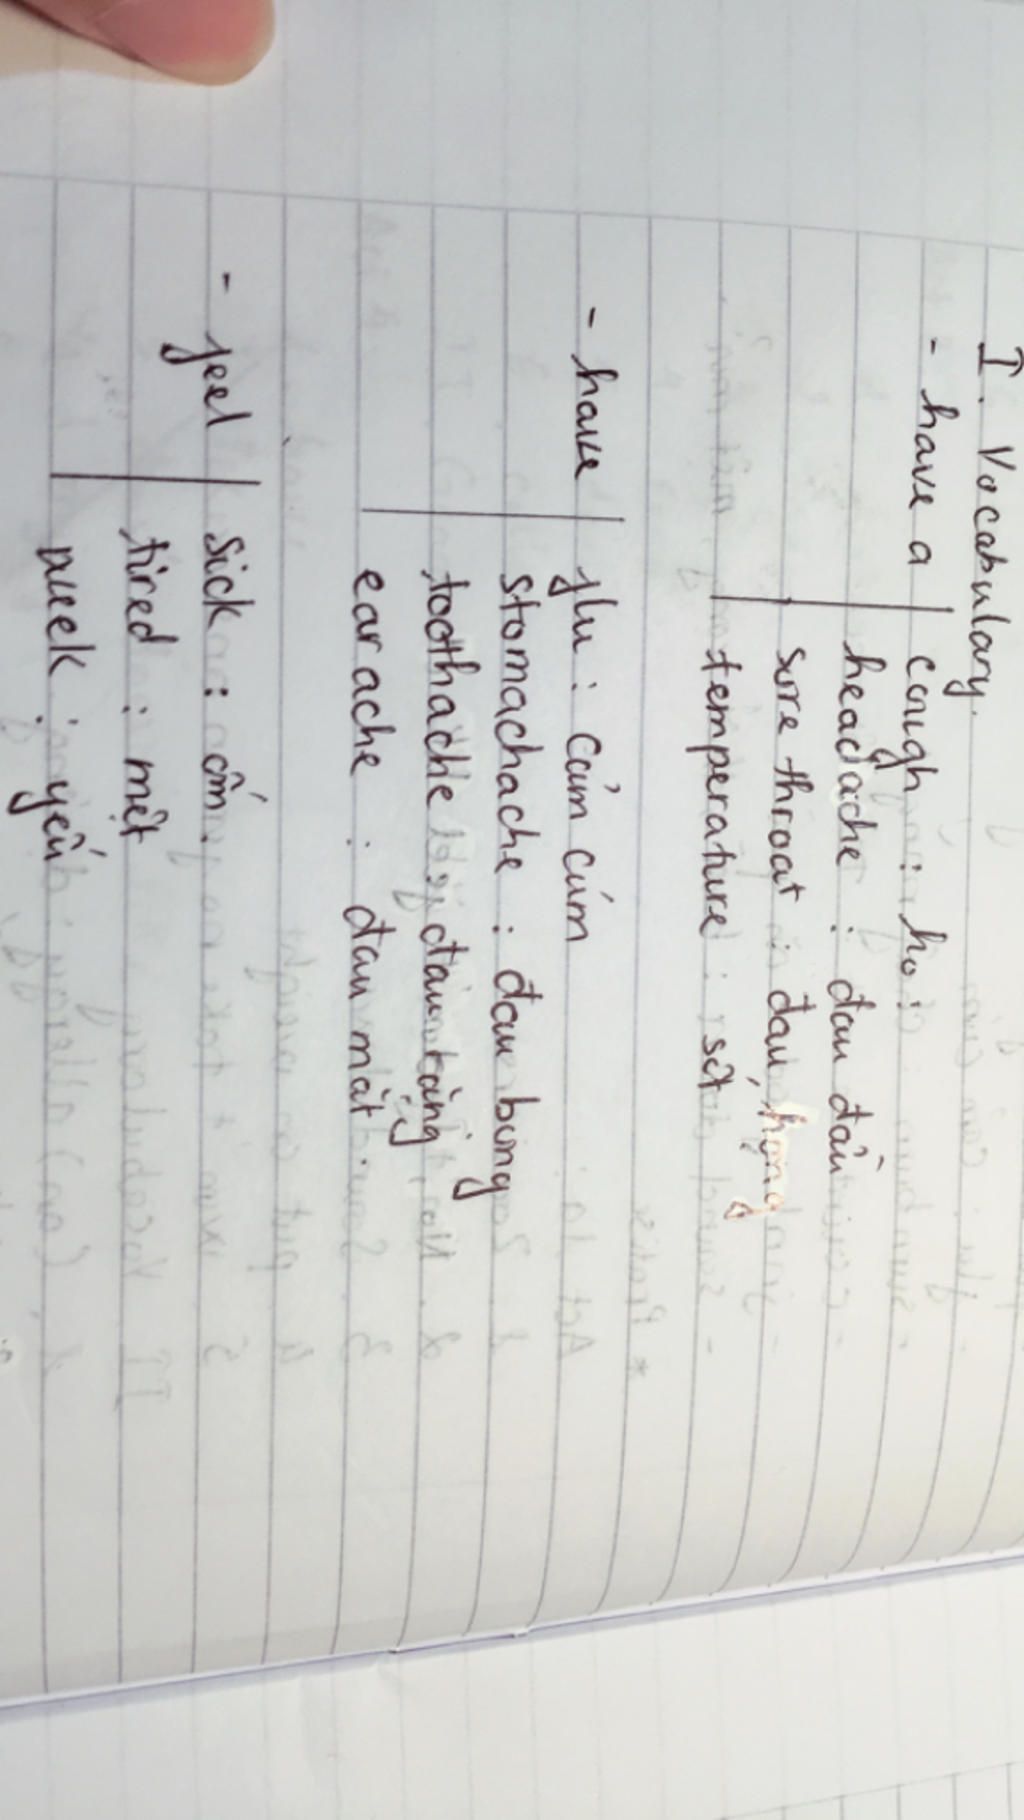 I. Vocabulary.
- have a cough : ho.
headache : đau đầu
sore throat đau họng
temperature : sốt
- have flu : cảm cúm
stomachache : đau bụng
toothache : đau răng
earache : đau mắt.
- feel sick : ốm.
tired : mệt
week : yếu